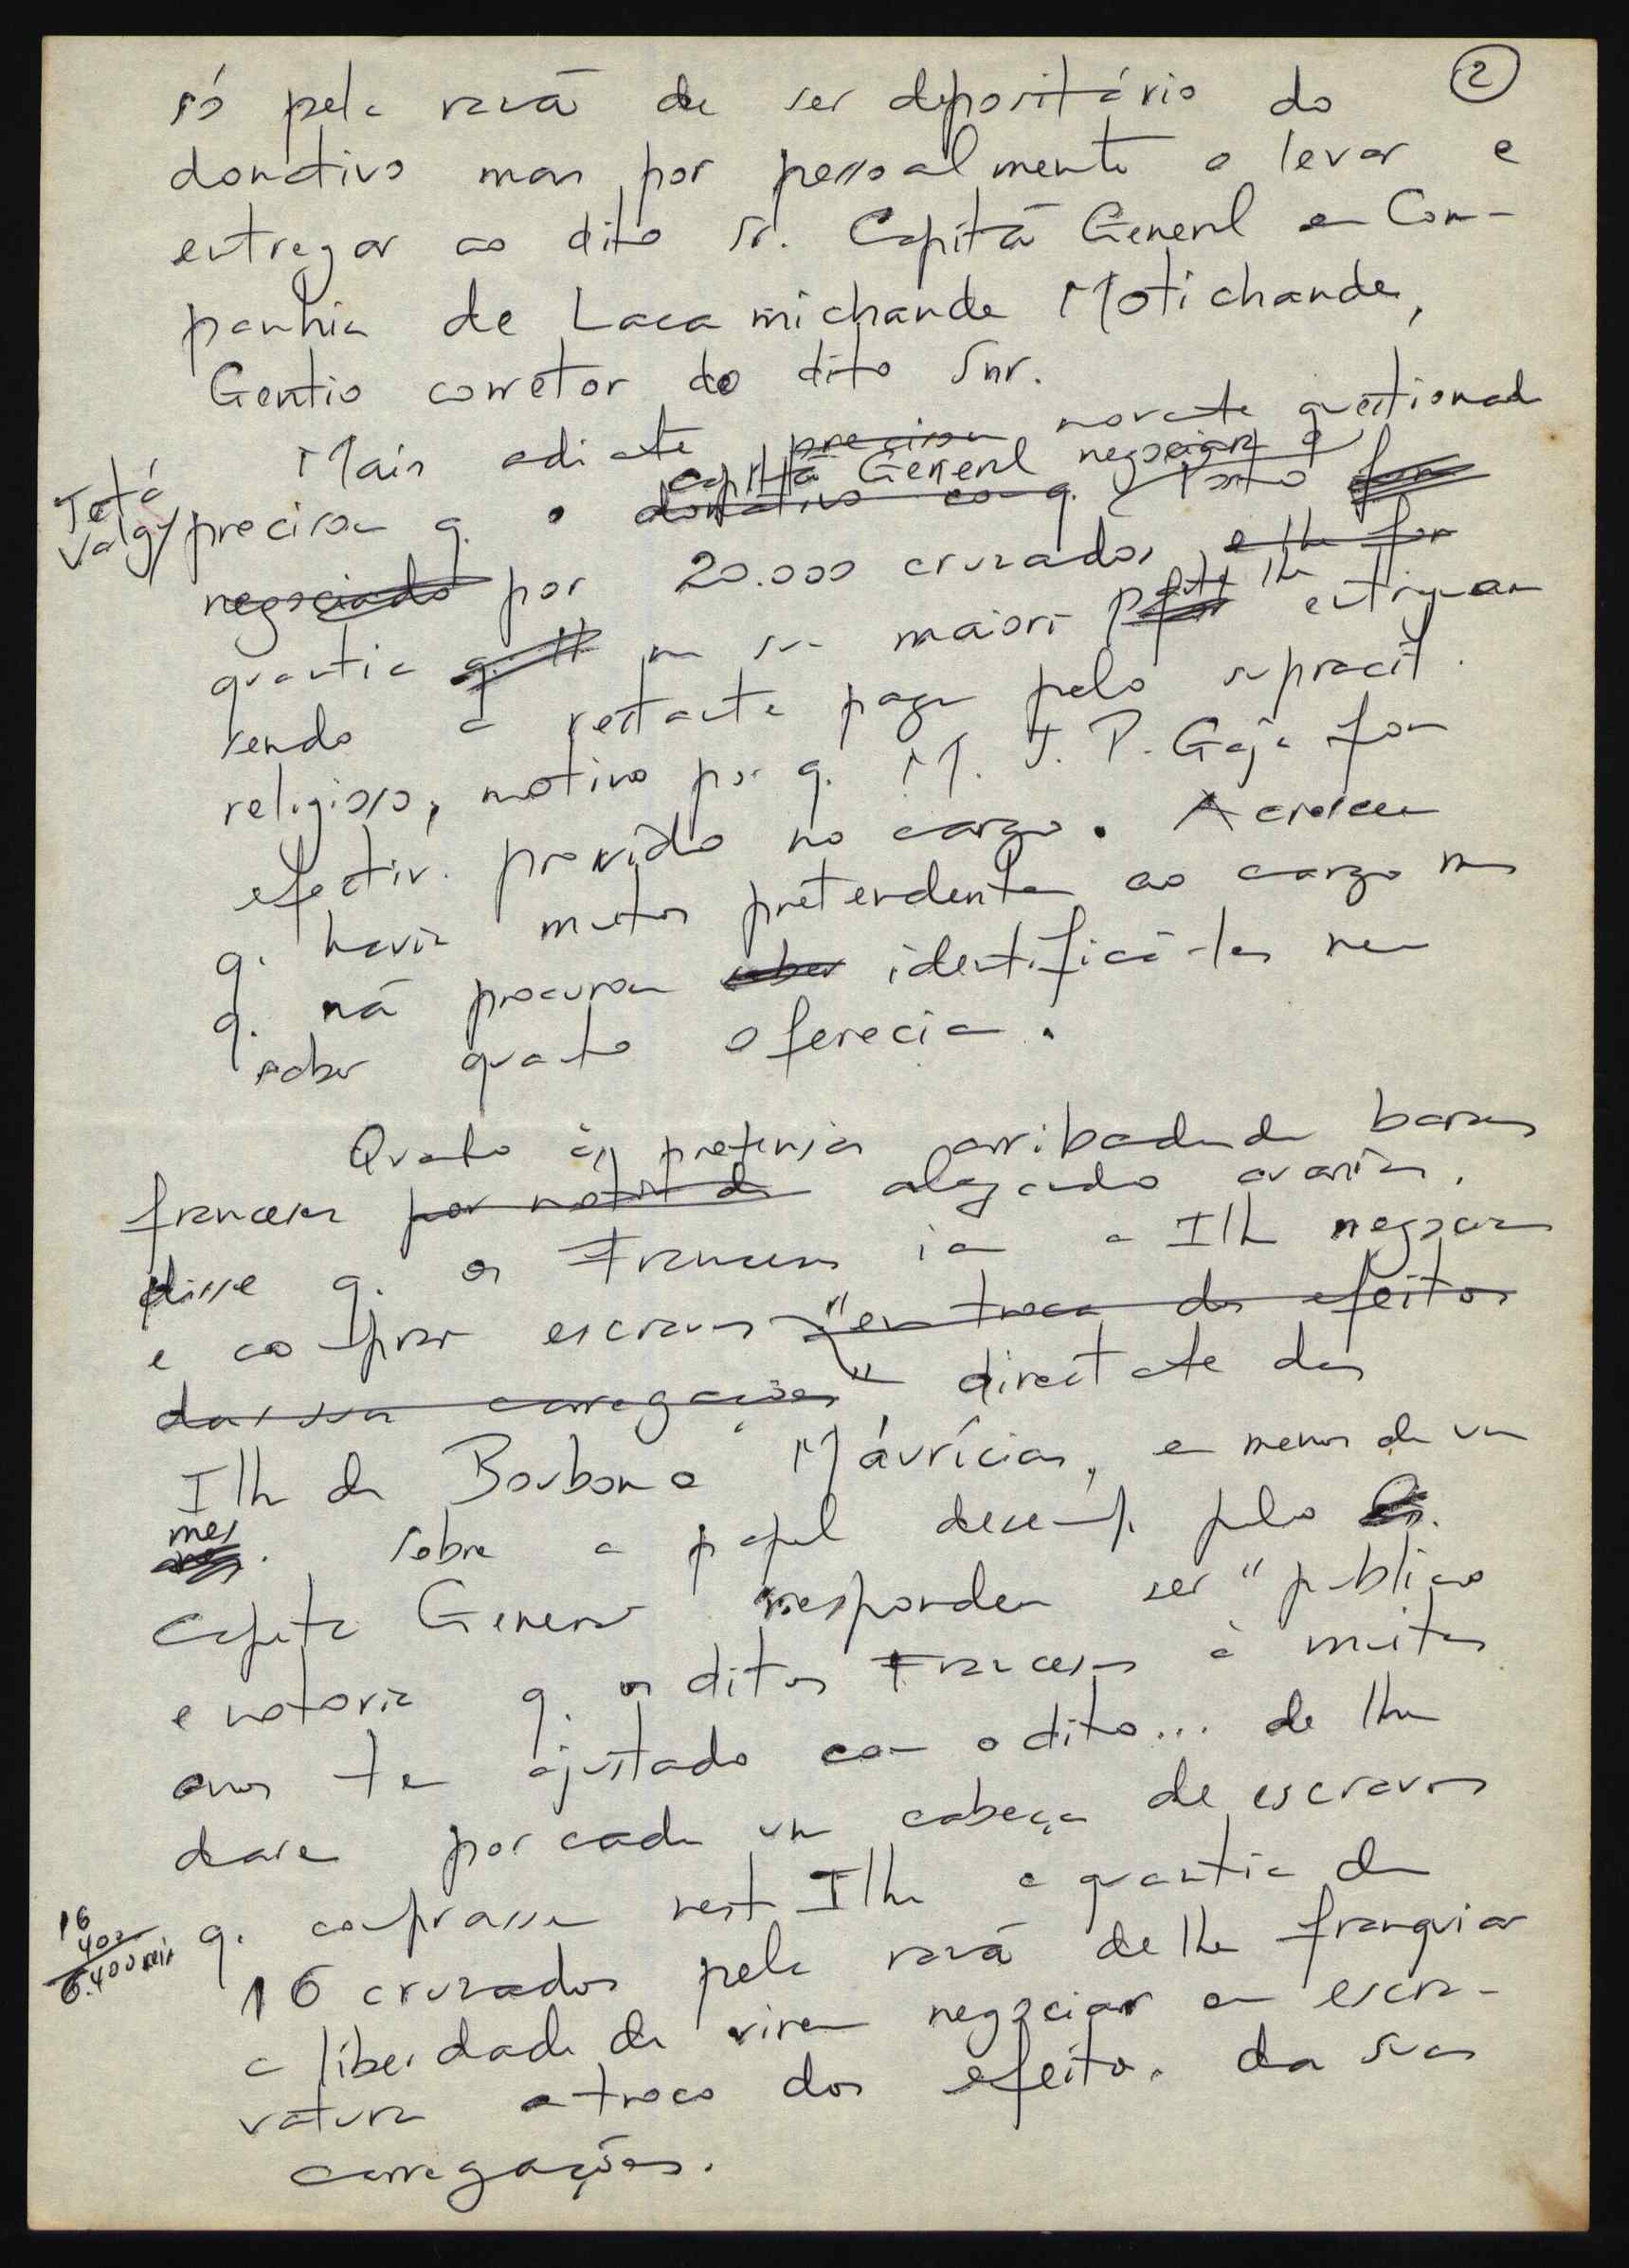 2
só pela razã de ser depositário do
donativo mas por pessoalmente o levar e
entregar ao dito Sr. Capitã General em Com-
panhia de Lacamichande Motichande,
Gentio corretor do dito Snr.
Mais adiante precisou novante questionado
Capitã General negociara o
precisou q. o donativo com q. Posto fora
negociado por 20.000 cruzados, e lhe fora
quantia q. na sua maioria lhe entregaram
sendo a restante paga pelo supracit.
religioso, motivo por q. M. J. P. Gajo fora
efectiv. provido no cargo. Acresceu
q. havia muitos pretendentes ao cargo mas
q. nã procurou saber identificá-los nem
saber quanto ofereciam.
Quanto às pretensas arribadas de barcos
franceses alegando avarias,
disse q. os Franceses iam a Ilha negociar
e comprar escravos "em troca dos efeitos
das suas carregações" directante das
Ilhas de Bourbon e Maurícias, em menos de um
mes. Sobre o papel desemp. pelo
Capitã General respondeu ser "publico
e notorio q. os ditos Franceses à muitos
anos tem ajustado com o dito... de lhe
darem por cada uma cabeça de escravos
q. comprassem nesta Ilha a quantia de
16
400
6.400 reis
16 cruzados pela razã de lhe franquiar
a liberdade de virem negociar em escra-
vatura a troco dos efeitos da suas
carregações.